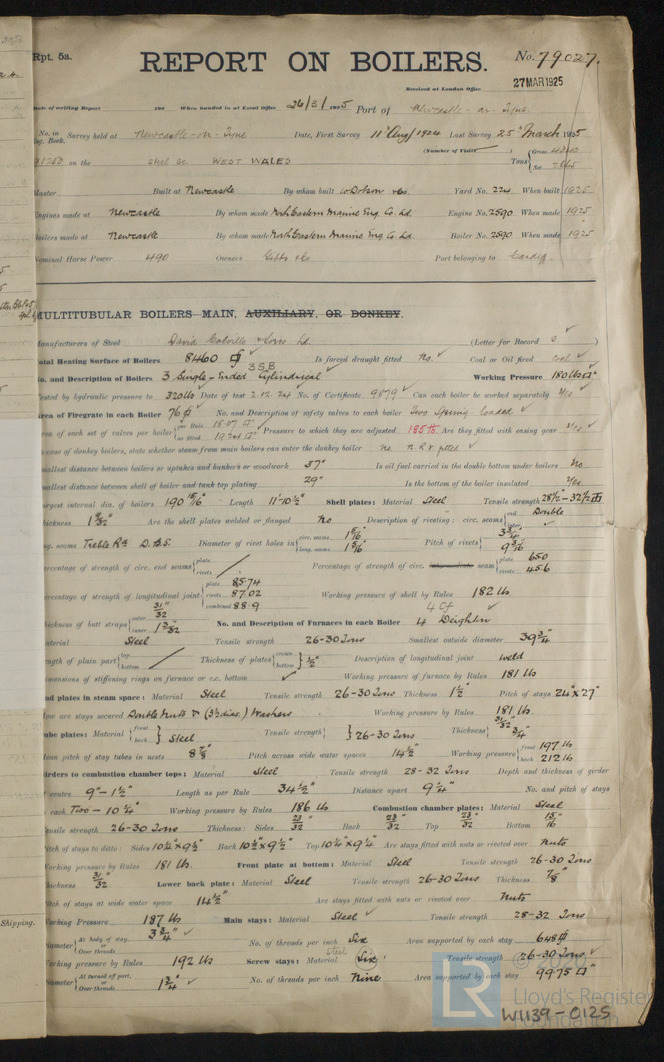 Rpt. 5a.
REPORT ON BOILERS.
No. 79027.
Received at London Office
27 MAR 1925
Date of writing Report 192 When handed in at Local Office 26/3/1925 Port of Newcastle-on-Tyne
No. in Reg. Book. Survey held at Newcastle-on-Tyne Date, First Survey 11th Aug/1924 Last Survey 25th March 1925
(Number of Visits )
on the Steel Sc WEST WALES Tons { Gross Net
Master Built at Newcastle By whom built W Dobson & Co. Yard No. 224 When built 1925
Engines made at Newcastle By whom made North Eastern Marine Eng. Co. Ld. Engine No. 2590 When made 1925
Boilers made at Newcastle By whom made North Eastern Marine Eng. Co. Ld. Boiler No. 2590 When made 1925
Nominal Horse Power 490 Owners Gibbs & Co Port belonging to Cardiff
MULTITUBULAR BOILERS MAIN, AUXILIARY, OR DONKEY.
Manufacturers of Steel David Colville & Sons Ld. (Letter for Record S )
Total Heating Surface of Boilers 8460 Is forced draught fitted No. Coal or Oil fired Coal
3 S.B
No. and Description of Boilers 3 Single-Ended Cylindrical Working Pressure 180 lbs
Tested by hydraulic pressure to 320 lbs Date of test 2.12.24 No. of Certificate 9879 Can each boiler be worked separately Yes
Area of Firegrate in each Boiler 76 No. and Description of safety valves to each boiler Two Spring-loaded
Area of each set of valves per boiler { per Rule 18.07 as fitted Pressure to which they are adjusted 185 lb. Are they fitted with easing gear Yes
In case of donkey boilers, state whether steam from main boilers can enter the donkey boiler No. N.R.V fitted
Smallest distance between boilers or uptakes and bunkers or woodwork 37" Is oil fuel carried in the double bottom under boilers No
Smallest distance between shell of boiler and tank top plating 29" Is the bottom of the boiler insulated Yes
Largest internal dia. of boilers 190 15/16" Length 11'-10½" Shell plates: Material Steel Tensile strength 28½-32½
Thickness 1 9/32" Are the shell plates welded or flanged No Description of riveting: circ. seams { end Double inter.
long. seams Treble Rd D.B.S. Diameter of rivet holes in { circ. seams 1 5/16" long. seams 1 5/16" Pitch of rivets { 3¾" 9 3/16"
Percentage of strength of circ. end seams { plate rivets Percentage of strength of circ. intermediate seam { plate 65.0 rivets 45.6
Percentage of strength of longitudinal joint { plate 85.74 rivets 87.02 combined 88.9 Working pressure of shell by Rules 182 lb
4 Cf
Thickness of butt straps { outer 31/32" inner 1 3/32" No. and Description of Furnaces in each Boiler 4 Deighton
Material Steel Tensile strength 26-30 Tons Smallest outside diameter 39¾"
Length of plain part { top bottom Thickness of plates { crown bottom } ½" Description of longitudinal joint Weld
Dimensions of stiffening rings on furnace or c.c. bottom Working pressure of furnace by Rules 181 lb
End plates in steam space: Material Steel Tensile strength 26-30 Tons Thickness 1½" Pitch of stays 24"x27"
How are stays secured Double Nuts & (3½ diac) Washers Working pressure by Rules 181 lb.
Tube plates: Material { front back } Steel Tensile strength { } 26-30 Tons Thickness { 31/32" ¾"
Mean pitch of stay tubes in nests 8 7/8" Pitch across wide water spaces 14½" Working pressure { front 197 lb back 212 lb
Girders to combustion chamber tops: Material Steel Tensile strength 28-32 Tons Depth and thickness of girder
at centre 9"-1½" Length as per Rule 34½" Distance apart 9¼" No. and pitch of stays
in each Two-10¼" Working pressure by Rules 186 lb Combustion chamber plates: Material Steel
Tensile strength 26-30 Tons Thickness: Sides 23/32" Back 23/32" Top 23/32" Bottom 15/16"
Pitch of stays to ditto: Sides 10¼"x9½" Back 10½"x9½" Top 10¼"x9¼" Are stays fitted with nuts or riveted over Nuts
Working pressure by Rules 181 lb. Front plate at bottom: Material Steel Tensile strength 26-30 Tons
Thickness 31/32" Lower back plate: Material Steel Tensile strength 26-30 Tons Thickness 7/8"
Pitch of stays at wide water space 14½" Are stays fitted with nuts or riveted over Nuts
Working Pressure 187 lb Main stays: Material Steel Tensile strength 28-32 Tons
Diameter { At body of stay, or Over threads 3¾" No. of threads per inch Six Area supported by each stay 648
Working pressure by Rules 192 lb Screw stays: Material Steel Six Tensile strength 26-30 Tons
Diameter { At turned off part, or Over threads 1¾" No. of threads per inch Nine Area supported by each stay 99.75
Shipping.
LR
Lloyd's Register
Foundation
W1139-0125